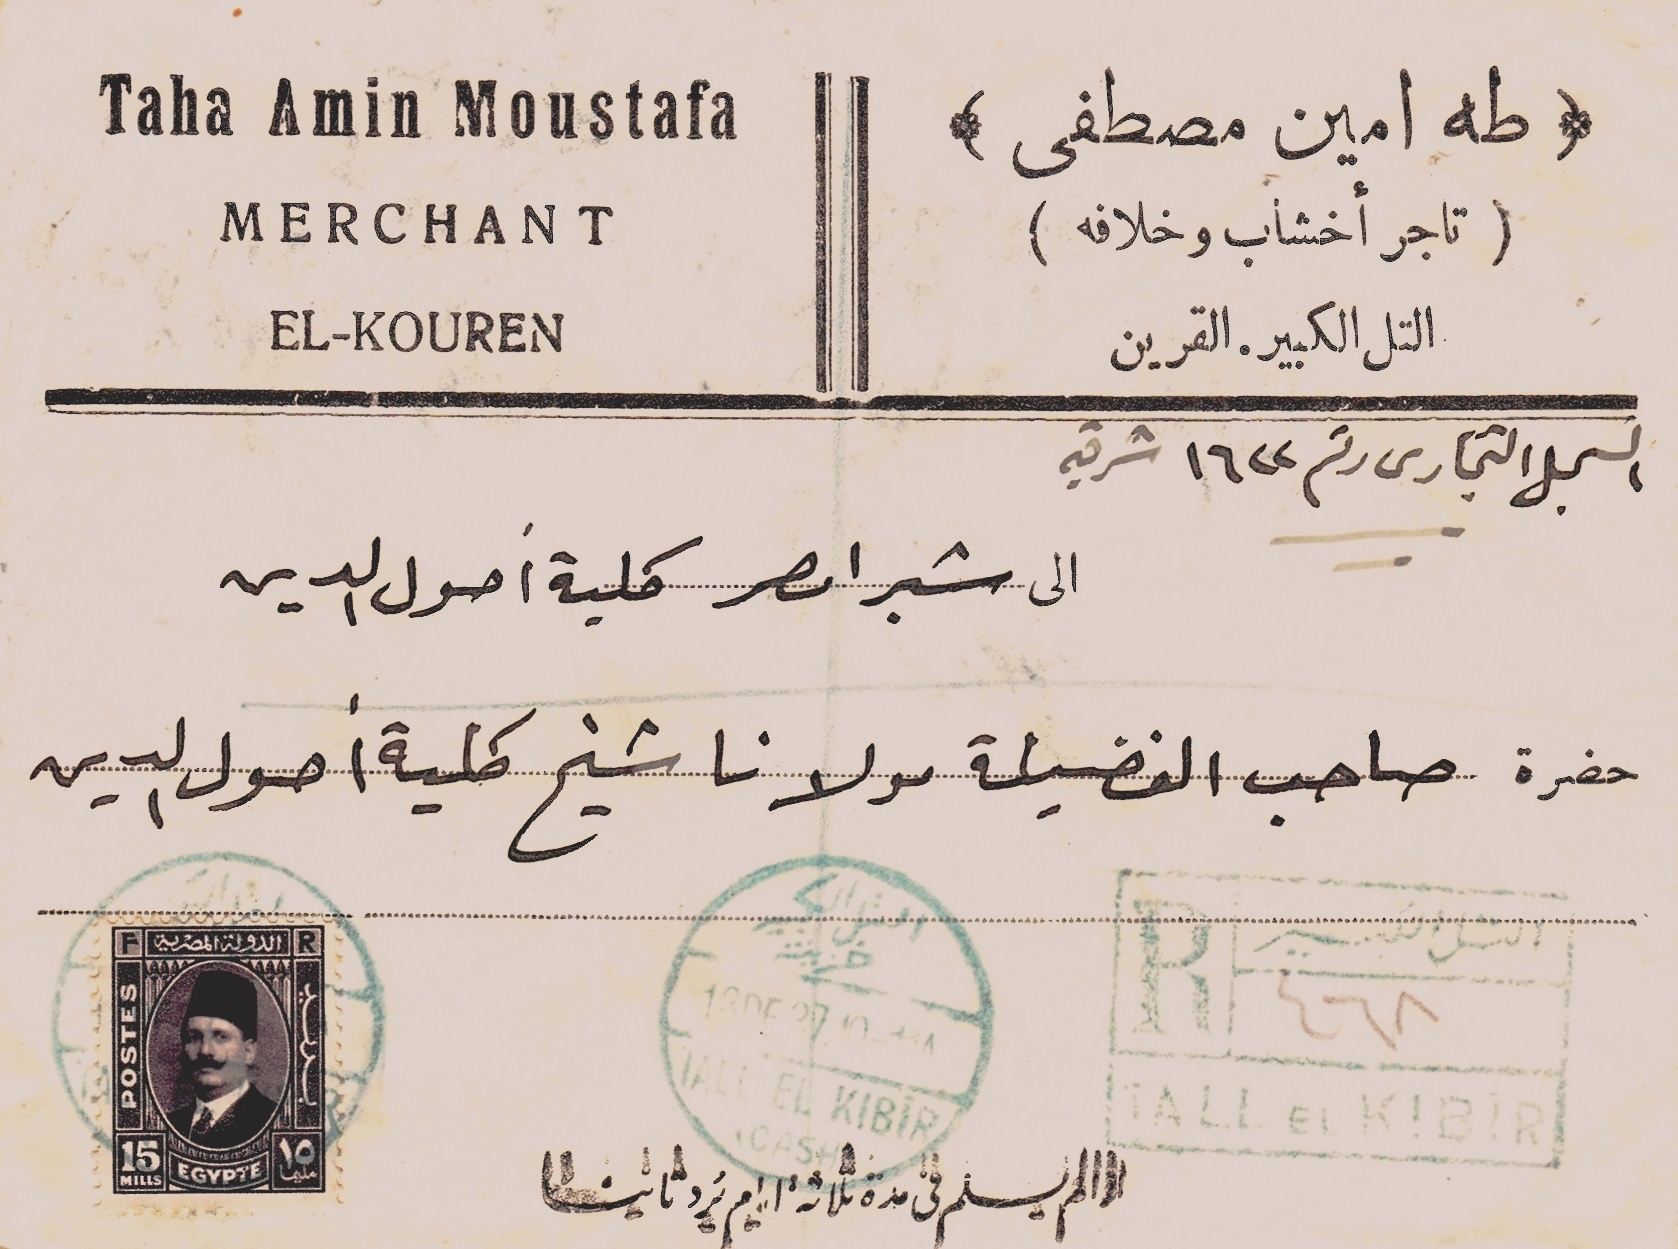 Taha Amin Moustafa
MERCHANT
EL-KOUREN
﴿ طه امين مصطفى ﴾
( تاجر أخشاب وخلافه )
التل الكبير . القرين
السجل التجارى رقم ١٦٢٢ شرقيه
الى شبرا مصر كلية أصول الدين
حضرة صاحب الفضيلة مولانا شيخ كلية أصول الدين
F الدولة المصرية R
POSTES
بريد
15
MILLS
EGYPTE
١٥
مليما
التل الكبير
18 DE 37. 10-11 A
TALL EL KIBIR
(CASH)
R
التل الكبير
٨٦٠٤
TALL EL KIBIR
اذا لم يسلم فى مدة ثلاثة ايام يرد ثانيا الى